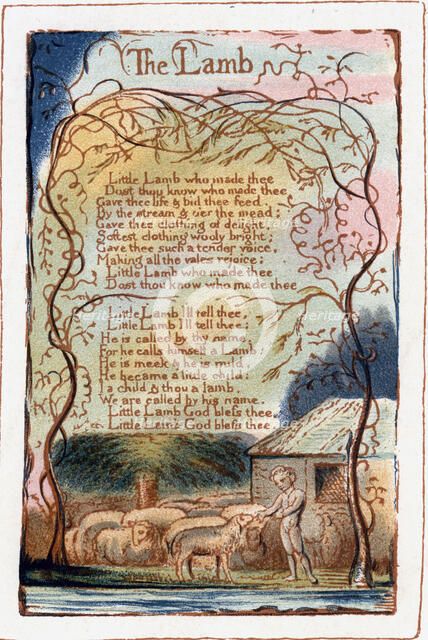 The Lamb
Little Lamb who made thee
Dost thou know who made thee
Gave thee life & bid thee feed.
By the stream & o'er the mead;
Gave thee clothing of delight,
Softest clothing wooly bright;
Gave thee such a tender voice,
Making all the vales rejoice:
Little Lamb who made thee
Dost thou know who made thee
Little Lamb I'll tell thee,
Little Lamb I'll tell thee;
He is called by thy name,
For he calls himself a Lamb:
He is meek & he is mild,
He became a little child:
I a child & thou a lamb,
We are called by his name.
Little Lamb God bless thee.
Little Lamb God bless thee.
heritage